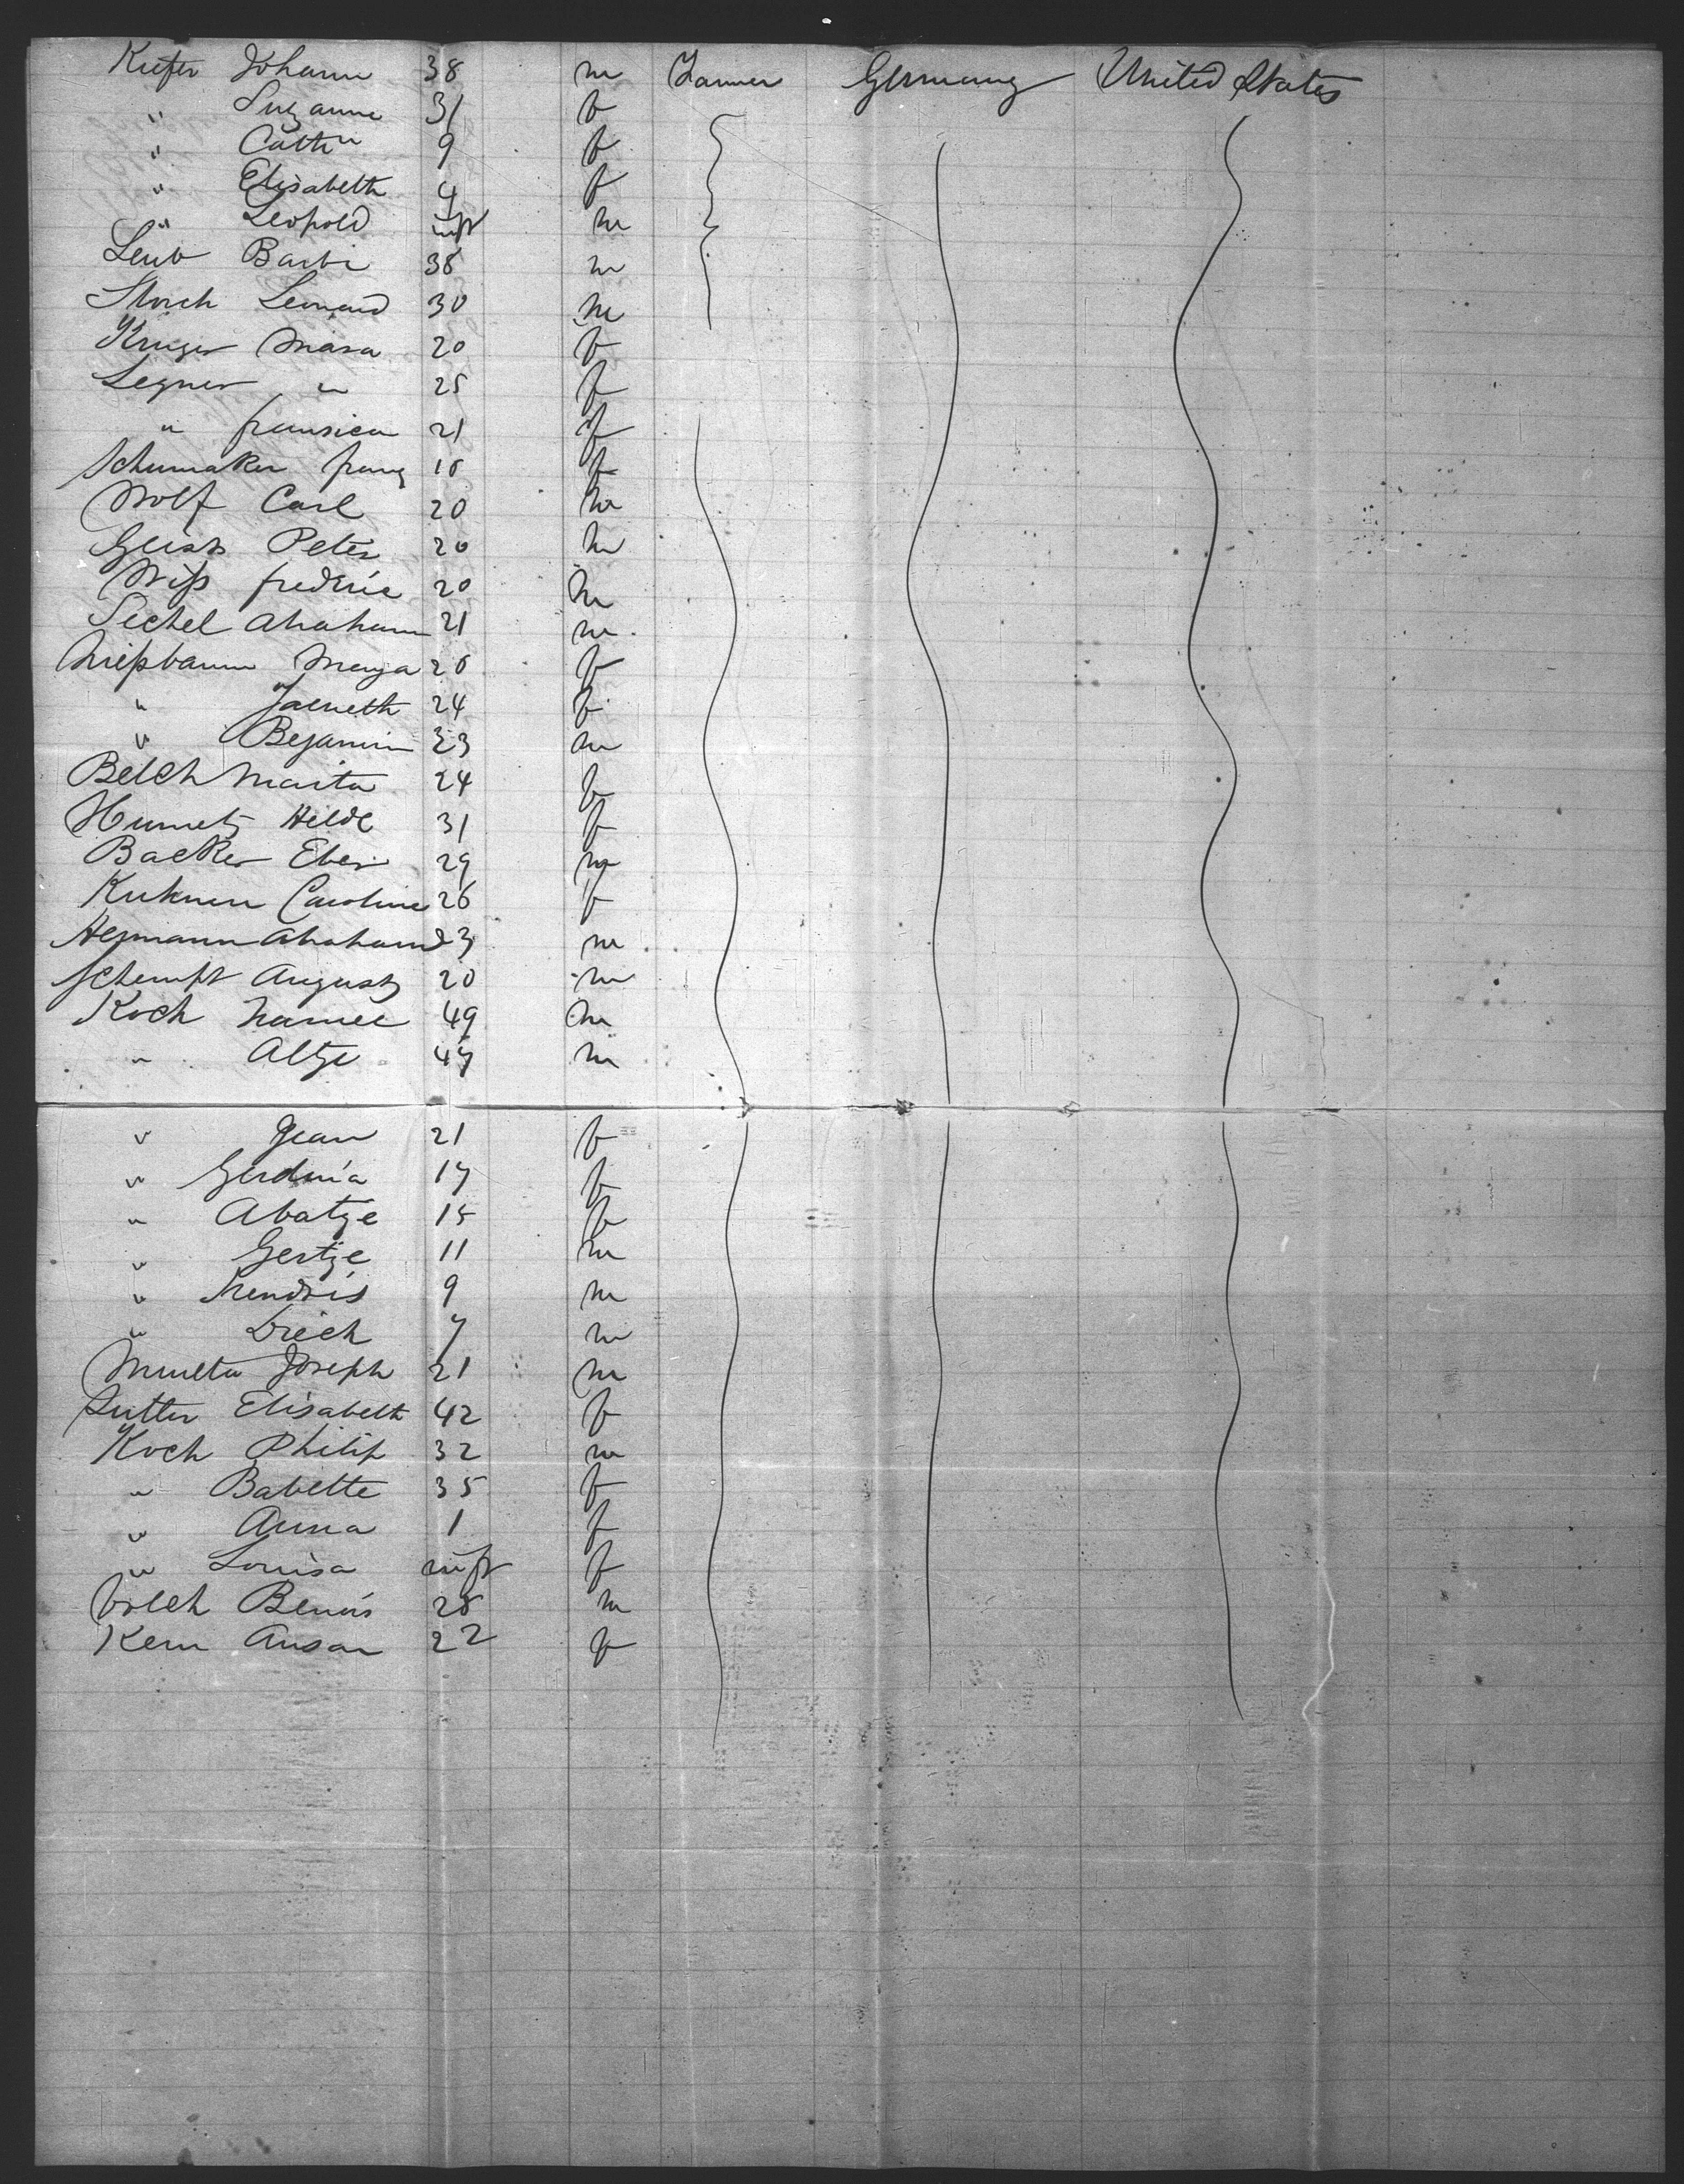 Kiefer Johann 38 m Farmer Germany United States
" Suzanne 31 f
" Cathn 9 f
" Elisabeth 4 f
" Leopold inft m
Leub Barbi 38 m
Storch Leonard 30 m
Kruger Maria 20 f
Legner " 25 f
" fransica 21 f
Schumaker franz 18 f
Wolf Carl 20 m
Geists Peter 20 m
Wiss frederic 20 m
Sichel Abraham 21 m
20 f
" 24 f
" Bejamin 23 m
Belch Marta 24 f
Hilde 31 f
Backer 29 m
Caroline 26 f
Heymann Abraham 23 m
Schempt August 20 m
Koch 49 m
" Altje 47 m
" Jean 21 f
" Gerdina 17 f
" Abatje 15 f
" Gertje 11 m
" Hendris 9 m
" Driek 7 m
Joseph 21 m
Sutter Elisabeth 42 f
Koch Philip 32 m
" Babette 35 f
" Anna 1 f
" Louisa inft f
28 m
Kern 22 f